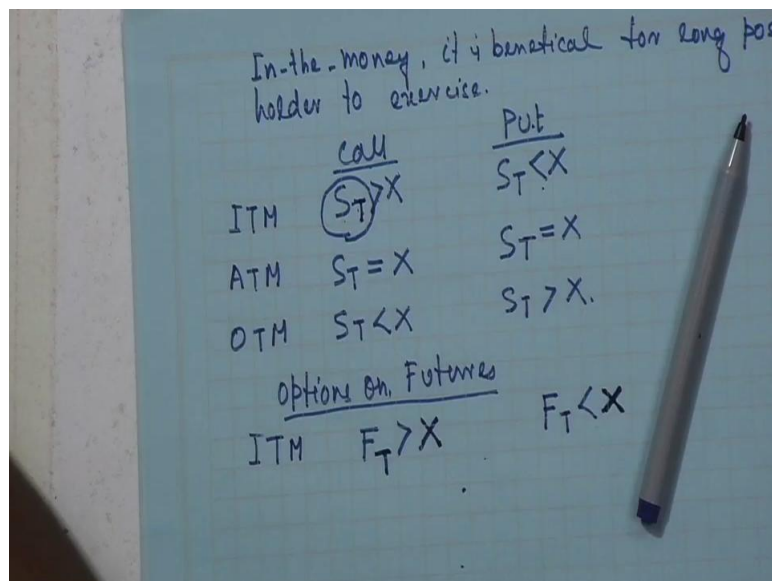 In-the-money, it is benetical for long pos
holder to exercise.
Call Put
ITM S_T > X S_T < X
ATM S_T = X S_T = X
OTM S_T < X S_T > X.
Options on Futures
ITM F_T > X F_T < X